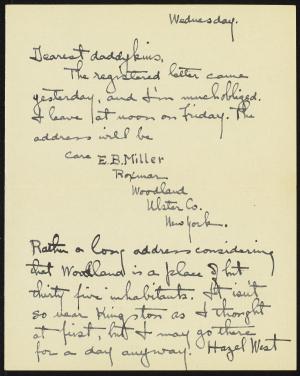 Wednesday.
Dearest daddykins,
The registered letter came
yesterday, and I'm much obliged.
I leave at noon on Friday. The
address will be
Care E.B. Miller
Roxmor
Woodland
Ulster Co.
New York.
Rather a long address considering
that Woodland is a place of but
thirty five inhabitants. It isn't
so near Kingston as I thought
at first, but I may go there
for a day anyway. Hazel West